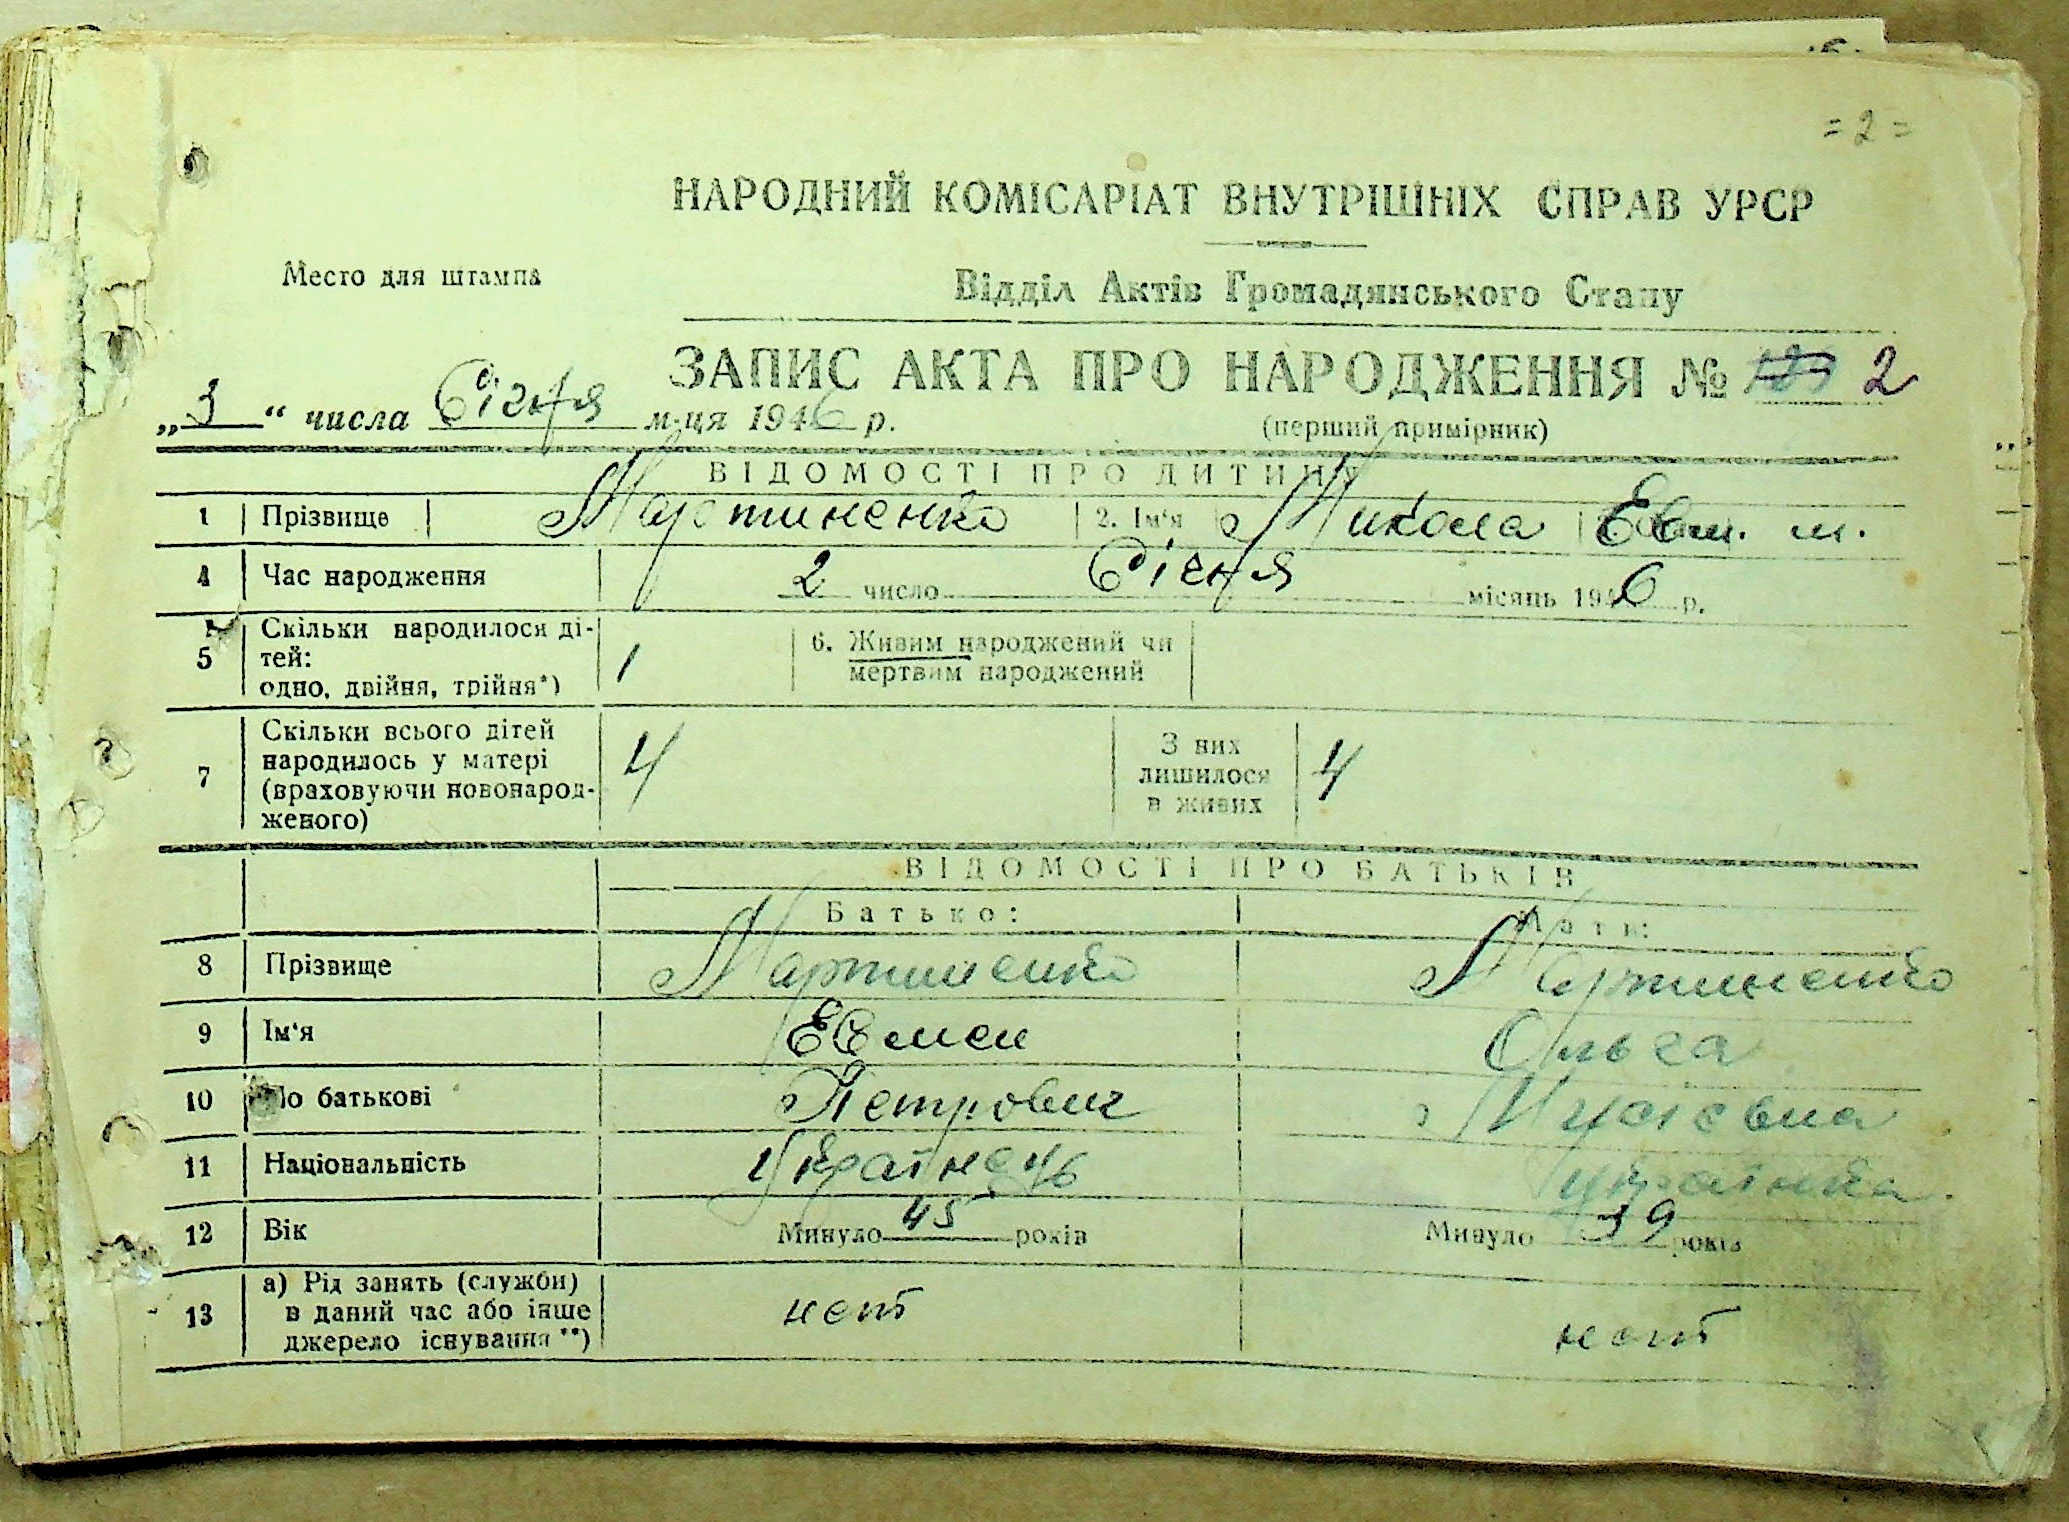 = 2 =
НАРОДНИЙ КОМІСАРІАТ ВНУТРІШНІХ СПРАВ УРСР
Место для штампа
Відділ Актів Громадянського Стану
ЗАПИС АКТА ПРО НАРОДЖЕННЯ № 2
„3“ числа Січня м-ця 1946 р.
(перший примірник)
ВІДОМОСТІ ПРО ДИТИНУ
1 Прізвище Мартиненко 2. Ім'я Микола Евм. м.
4 Час народження 2 число Січня місяць 1946 р.
5 Скільки народилося ді-
тей:
одно, двійня, трійня*) 1
6. Живим народжений чи
мертвим народжений
7 Скільки всього дітей
народилось у матері
(враховуючи новонарод-
женого) 4
З них
лишилося
в живих 4
ВІДОМОСТІ ПРО БАТЬКІВ
Батько: Мати:
8 Прізвище Мартиненко Мартиненко
9 Ім'я Евмен Ольга
10 По батькові Петрович Мусієвна
11 Національність Українець Українка.
12 Вік Минуло 45 років Минуло 39 років
13 а) Рід занять (служби)
в даний час або інше
джерело існування **) нет нет